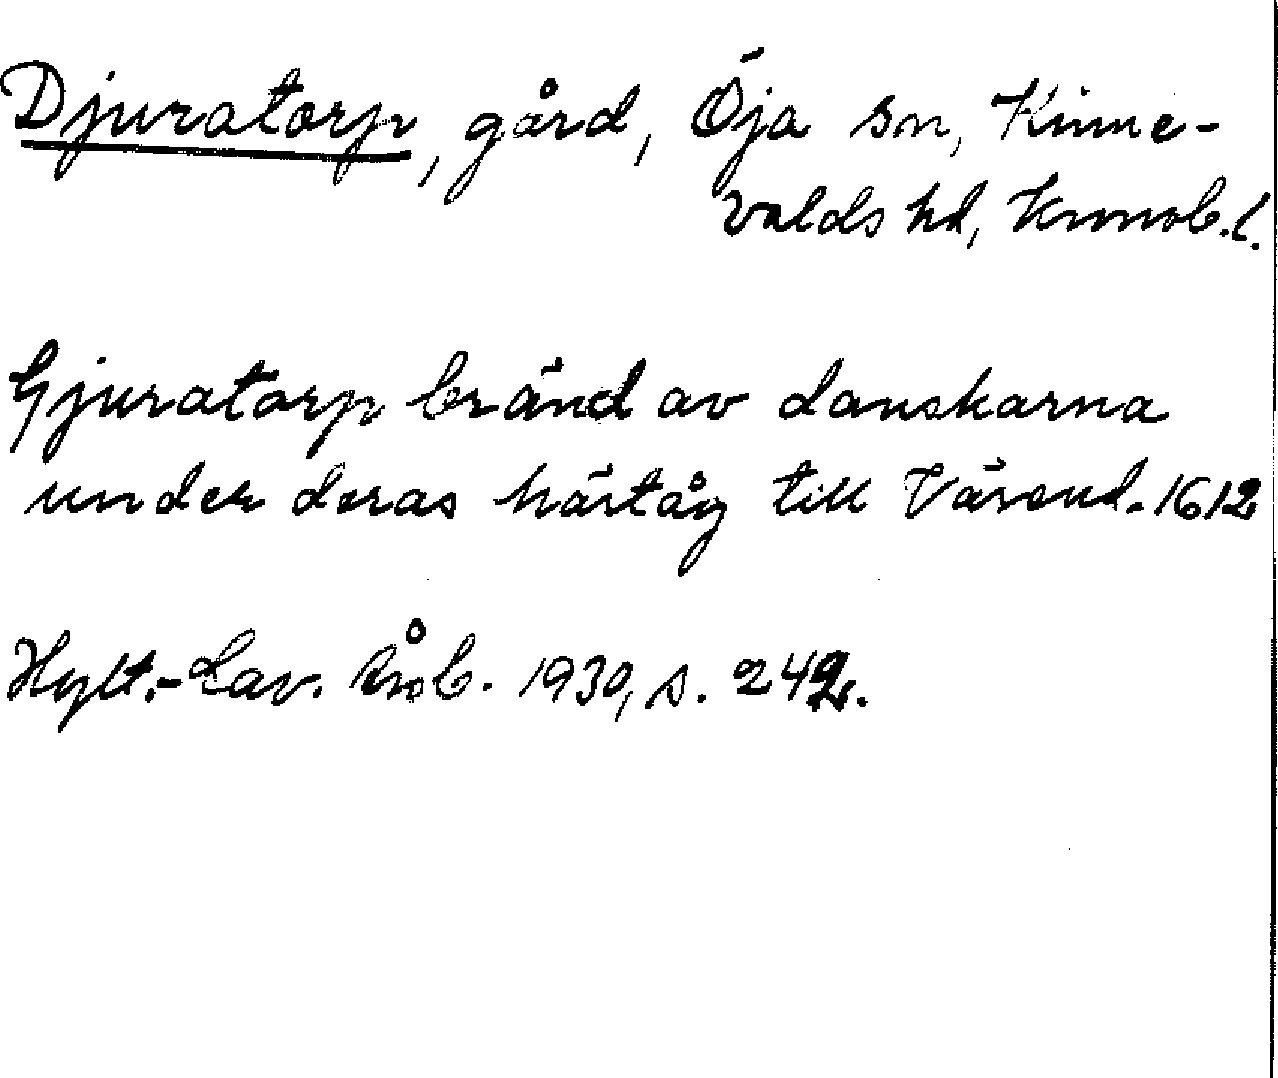 Djuratorp, gård, Öja sn, Kinne-
valds hd, Kronob.l.
Gjuratorp bränd av danskarna
under deras härtåg till Värend. 1612
Hylt.-Cav. 1930, s. 242.